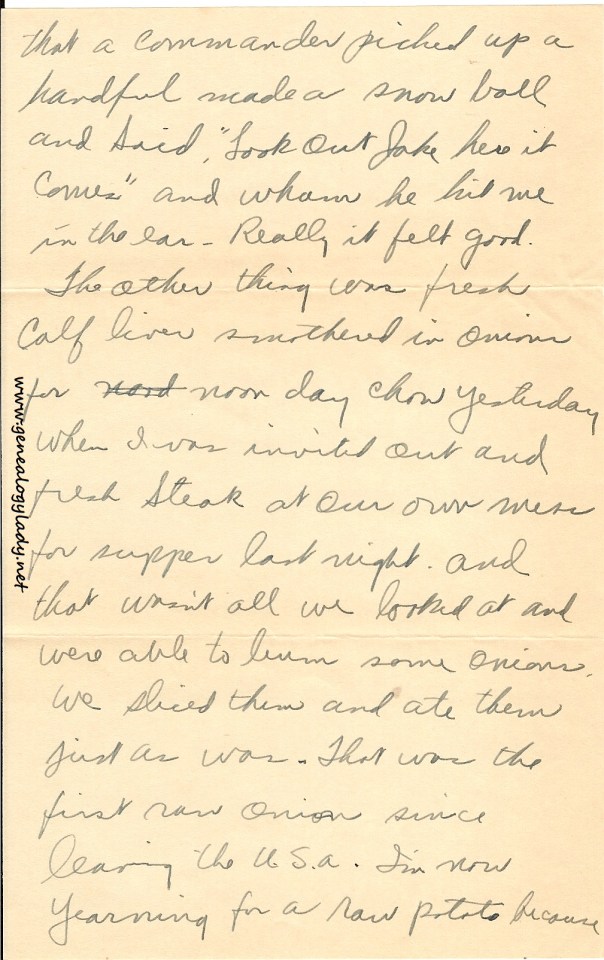 that a commander picked up a
handful made a snow ball
and said, "Look Out Jake here it
Comes" and wham he hit me
in the ear - Really it felt good.
The other thing was fresh
Calf liver smothered in onions
for noon day chow yesterday
when I was invited out and
fresh steak at our own mess
for supper last night. and
that wasn't all we looked at and
were able to bum some onions.
We sliced them and ate them
just as was. That was the
first raw onion since
leaving the U.S.A. I'm now
yearning for a raw potato because
www.genealogylady.net